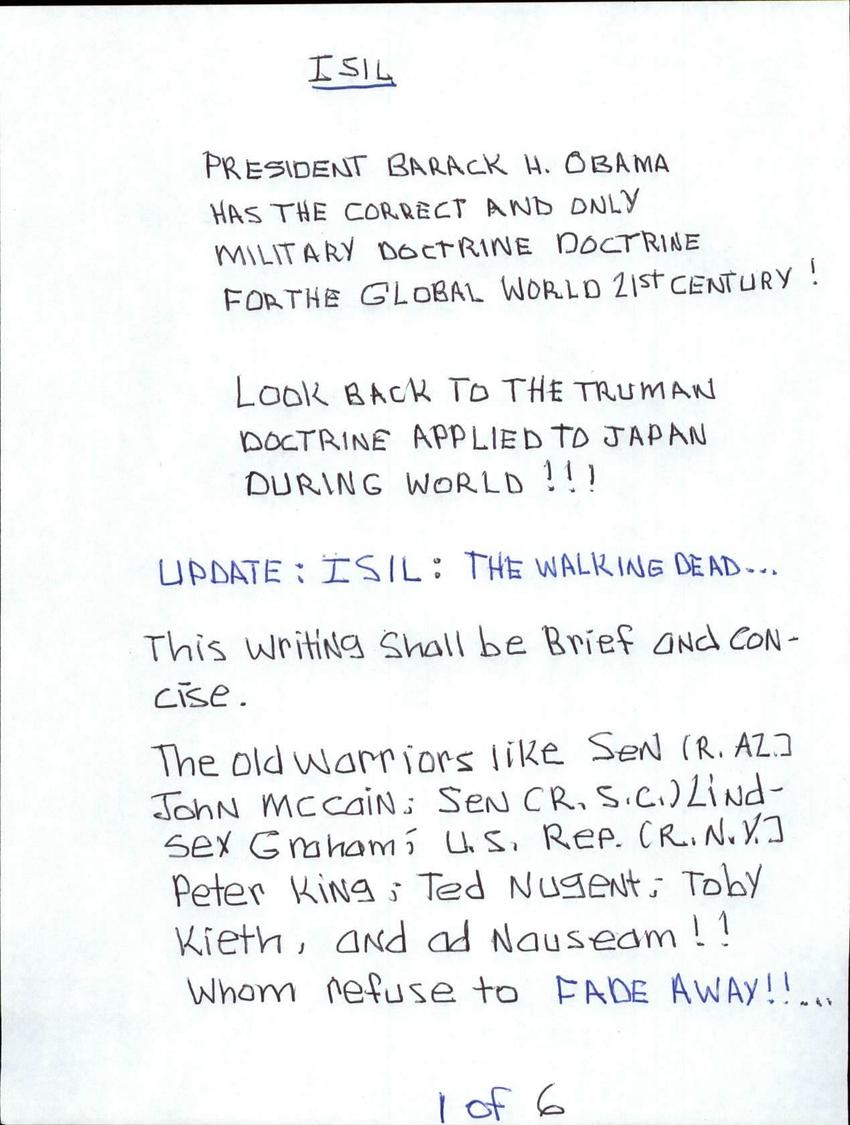 ISIL
PRESIDENT BARACK H. OBAMA
HAS THE CORRECT AND ONLY
MILITARY DOCTRINE DOCTRINE
FOR THE GLOBAL WORLD 21st CENTURY!
LOOK BACK TO THE TRUMAN
DOCTRINE APPLIED TO JAPAN
DURING WORLD!!!
UPDATE: ISIL: THE WALKING DEAD...
This writing Shall be Brief and CON-
cise.
The old warriors like SeN (R. AZ.]
John McCain; SeN (R. S.C.) Lind-
sey Graham; U.S. Rep. (R. N.Y.]
Peter King; Ted Nugent; Toby
Kieth, and ad Nauseam!!
Whom refuse to FADE AWAY!!...
1 of 6